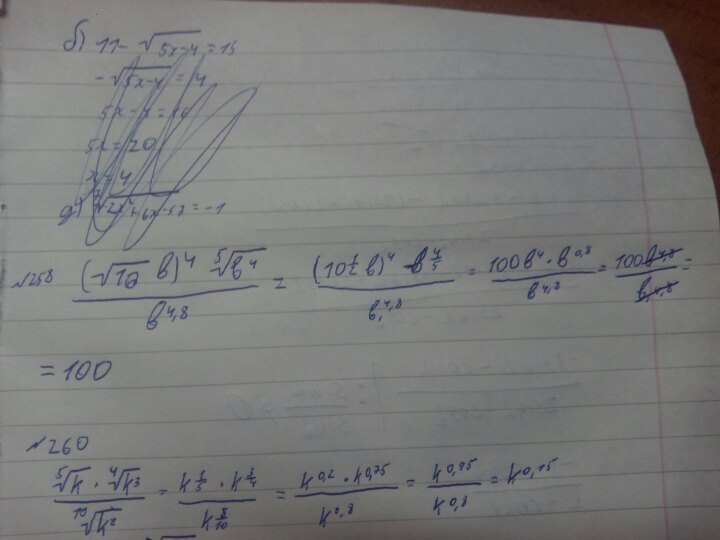 б) 11 - √(5x-4) = 15
-√(5x-4) = 4
5x-4 = 16
5x = 20
x = 4
= -1
№258 (√10 b)⁴ ⁵√b⁴ / b^4,8 = (10^(1/2) b)⁴ b^(4/5) / b^4,8 = 100b⁴ · b^0,8 / b^4,8 = 100b^4,8 / b^4,8 =
= 100
№260
⁵√k · ⁴√k³ / ¹⁰√k⁸ = k^(1/5) · k^(3/4) / k^(8/10) = k^0,2 · k^0,75 / k^0,8 = k^0,95 / k^0,8 = k^0,15